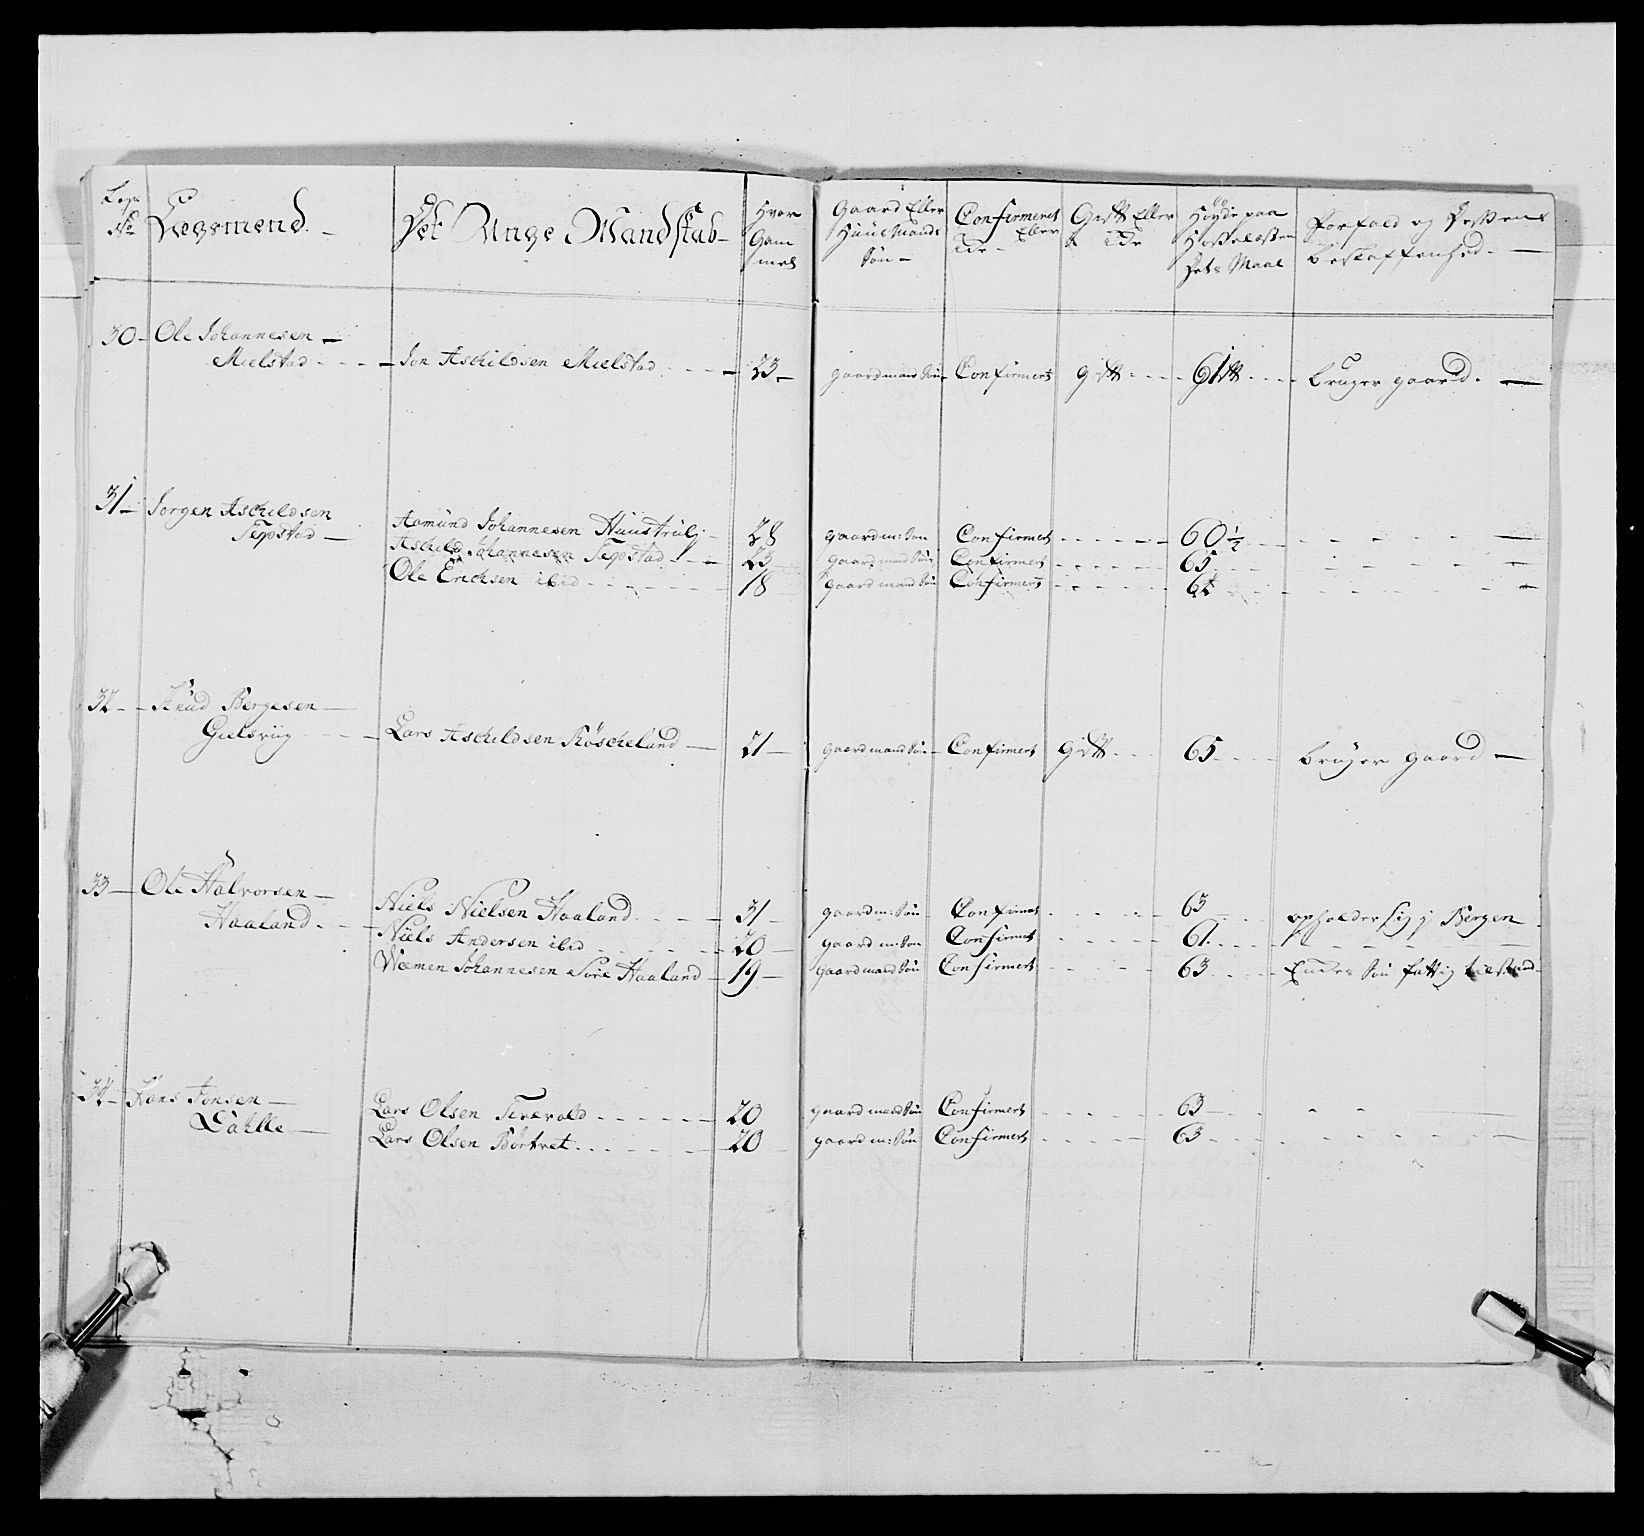 Legs No Lægsmend. Det Unge Mandskab Hvor Gammel Gaard Eller Huusmands Søn Confirmeret Eller Ide Gift Eller Ide Høyde paa Hosselæsten Dets Maal Forfald og Bestaffenhed.
30 Ole Johannesen
Mielstad Jon Aschildsen Mielstad 23 gaardmand Søn Confirmert gift 61 bruger gaard.
31 Jorgen Aschildsen
Tepstad Aamund Johannesen 28 gaardm: Søn Confirmet 60 1/2
Aschild Johannesen Tepstad 23 gaardmand Søn Confirmert 65
Ole Erichsen ibid 18 gaardmand Søn Confirmert
32 Knud Bergesen
Lars Aschildsen Røscheland 21 gaardmand Søn Confirmert gift 65 bruger gaard
33 Ole Halvorsen
Haaland Niels Nielsen Haaland 31 gaardm: Søn Confirmet 63 opholder sig j Bergen
Niels Andersen ibid 20 gaardm: Søn Confirmet 61
Wemen Johannesen Haaland 19 gaardmand Søn Confirmert 63 Søn fattig tilstand
34 Hans Jonsen
Dahlle Lars Olsen 20 gaardmand Søn Confirmert 63
Lars Olsen Børtvet 20 gaardm: Søn Confirmert 63